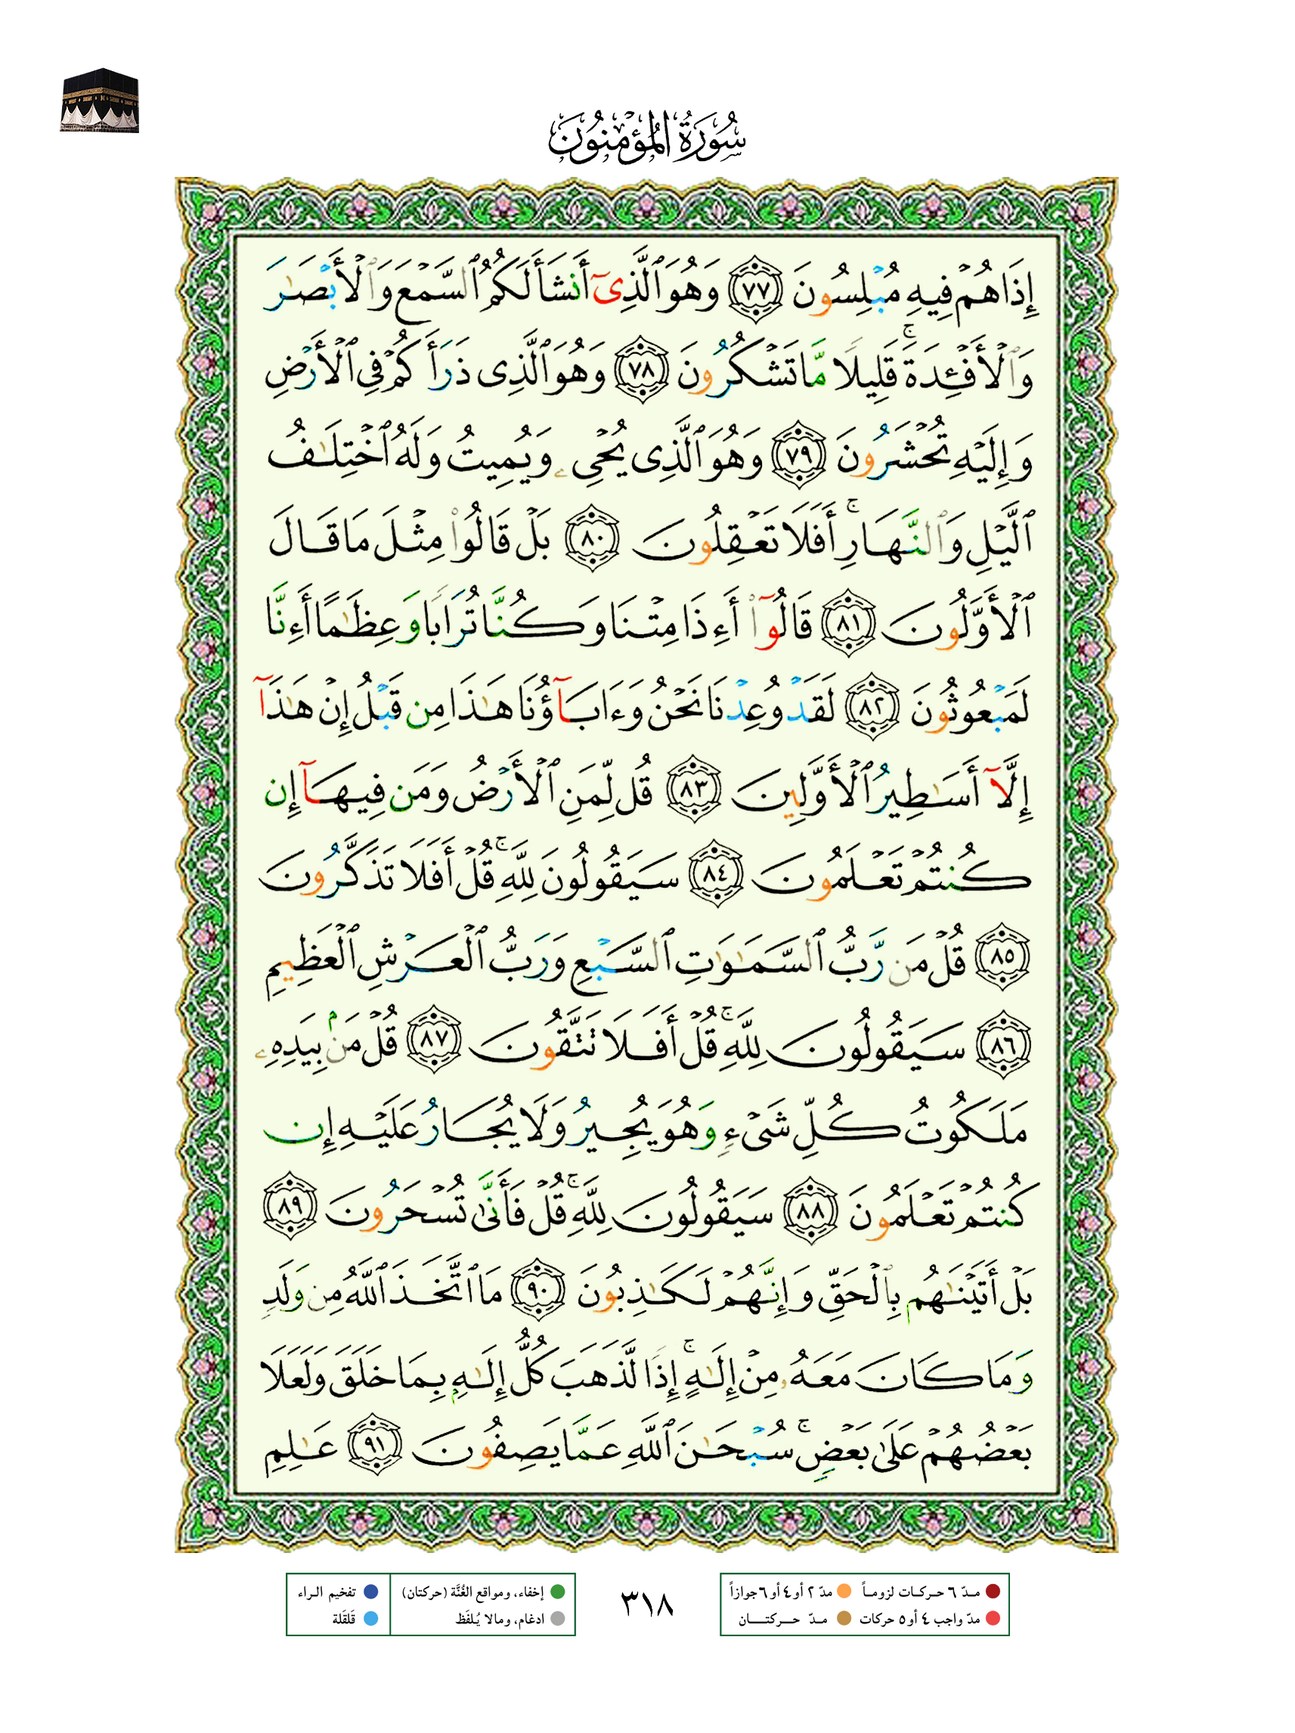 سُورَةُ الْمُؤْمِنُونَ
إِذَا هُمْ فِيهِ مُبْلِسُونَ ﴿٧٧﴾ وَهُوَ ٱلَّذِىٓ أَنشَأَ لَكُمُ ٱلسَّمْعَ وَٱلْأَبْصَٰرَ
وَٱلْأَفْـِٔدَةَ ۚ قَلِيلًا مَّا تَشْكُرُونَ ﴿٧٨﴾ وَهُوَ ٱلَّذِى ذَرَأَكُمْ فِى ٱلْأَرْضِ
وَإِلَيْهِ تُحْشَرُونَ ﴿٧٩﴾ وَهُوَ ٱلَّذِى يُحْىِۦ وَيُمِيتُ وَلَهُ ٱخْتِلَٰفُ
ٱلَّيْلِ وَٱلنَّهَارِ ۚ أَفَلَا تَعْقِلُونَ ﴿٨٠﴾ بَلْ قَالُوا۟ مِثْلَ مَا قَالَ
ٱلْأَوَّلُونَ ﴿٨١﴾ قَالُوٓا۟ أَءِذَا مِتْنَا وَكُنَّا تُرَابًا وَعِظَٰمًا أَءِنَّا
لَمَبْعُوثُونَ ﴿٨٢﴾ لَقَدْ وُعِدْنَا نَحْنُ وَءَابَآؤُنَا هَٰذَا مِن قَبْلُ إِنْ هَٰذَآ
إِلَّآ أَسَٰطِيرُ ٱلْأَوَّلِينَ ﴿٨٣﴾ قُل لِّمَنِ ٱلْأَرْضُ وَمَن فِيهَآ إِن
كُنتُمْ تَعْلَمُونَ ﴿٨٤﴾ سَيَقُولُونَ لِلَّهِ ۚ قُلْ أَفَلَا تَذَكَّرُونَ
﴿٨٥﴾ قُلْ مَن رَّبُّ ٱلسَّمَٰوَٰتِ ٱلسَّبْعِ وَرَبُّ ٱلْعَرْشِ ٱلْعَظِيمِ
﴿٨٦﴾ سَيَقُولُونَ لِلَّهِ ۚ قُلْ أَفَلَا تَتَّقُونَ ﴿٨٧﴾ قُلْ مَنۢ بِيَدِهِۦ
مَلَكُوتُ كُلِّ شَىْءٍ وَهُوَ يُجِيرُ وَلَا يُجَارُ عَلَيْهِ إِن
كُنتُمْ تَعْلَمُونَ ﴿٨٨﴾ سَيَقُولُونَ لِلَّهِ ۚ قُلْ فَأَنَّىٰ تُسْحَرُونَ ﴿٨٩﴾
بَلْ أَتَيْنَٰهُم بِٱلْحَقِّ وَإِنَّهُمْ لَكَٰذِبُونَ ﴿٩٠﴾ مَا ٱتَّخَذَ ٱللَّهُ مِن وَلَدٍ
وَمَا كَانَ مَعَهُۥ مِنْ إِلَٰهٍ ۚ إِذًا لَّذَهَبَ كُلُّ إِلَٰهٍۭ بِمَا خَلَقَ وَلَعَلَا
بَعْضُهُمْ عَلَىٰ بَعْضٍ ۚ سُبْحَٰنَ ٱللَّهِ عَمَّا يَصِفُونَ ﴿٩١﴾ عَٰلِمِ
مدّ ٦ حركات لزوماً مدّ ٢ أو ٤ أو ٦ جوازاً
مدّ واجب ٤ أو ٥ حركات مدّ حركتان
٣١٨
إخفاء، ومواقع الغُنَّة (حركتان) تفخيم الراء
ادغام، ومالا يُلفَظ قلقلة